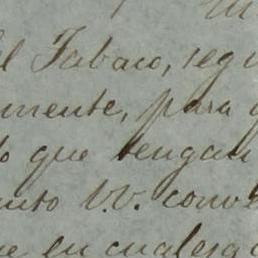 el Tabaco, segu
mente, para q
o que tengan
anto V.V. conve
ue en cualesq